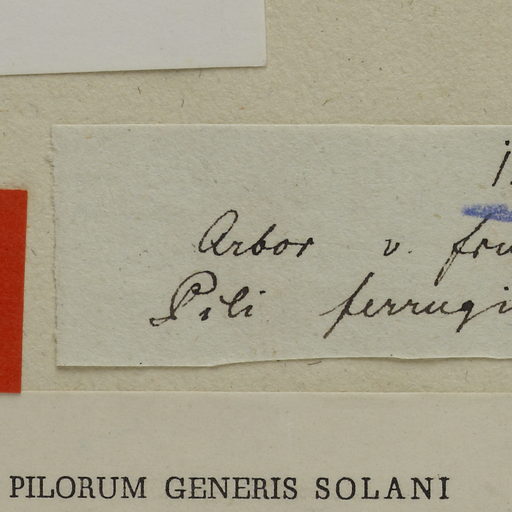 Arbor v. fru
Pili ferrugi
PILORUM GENERIS SOLANI